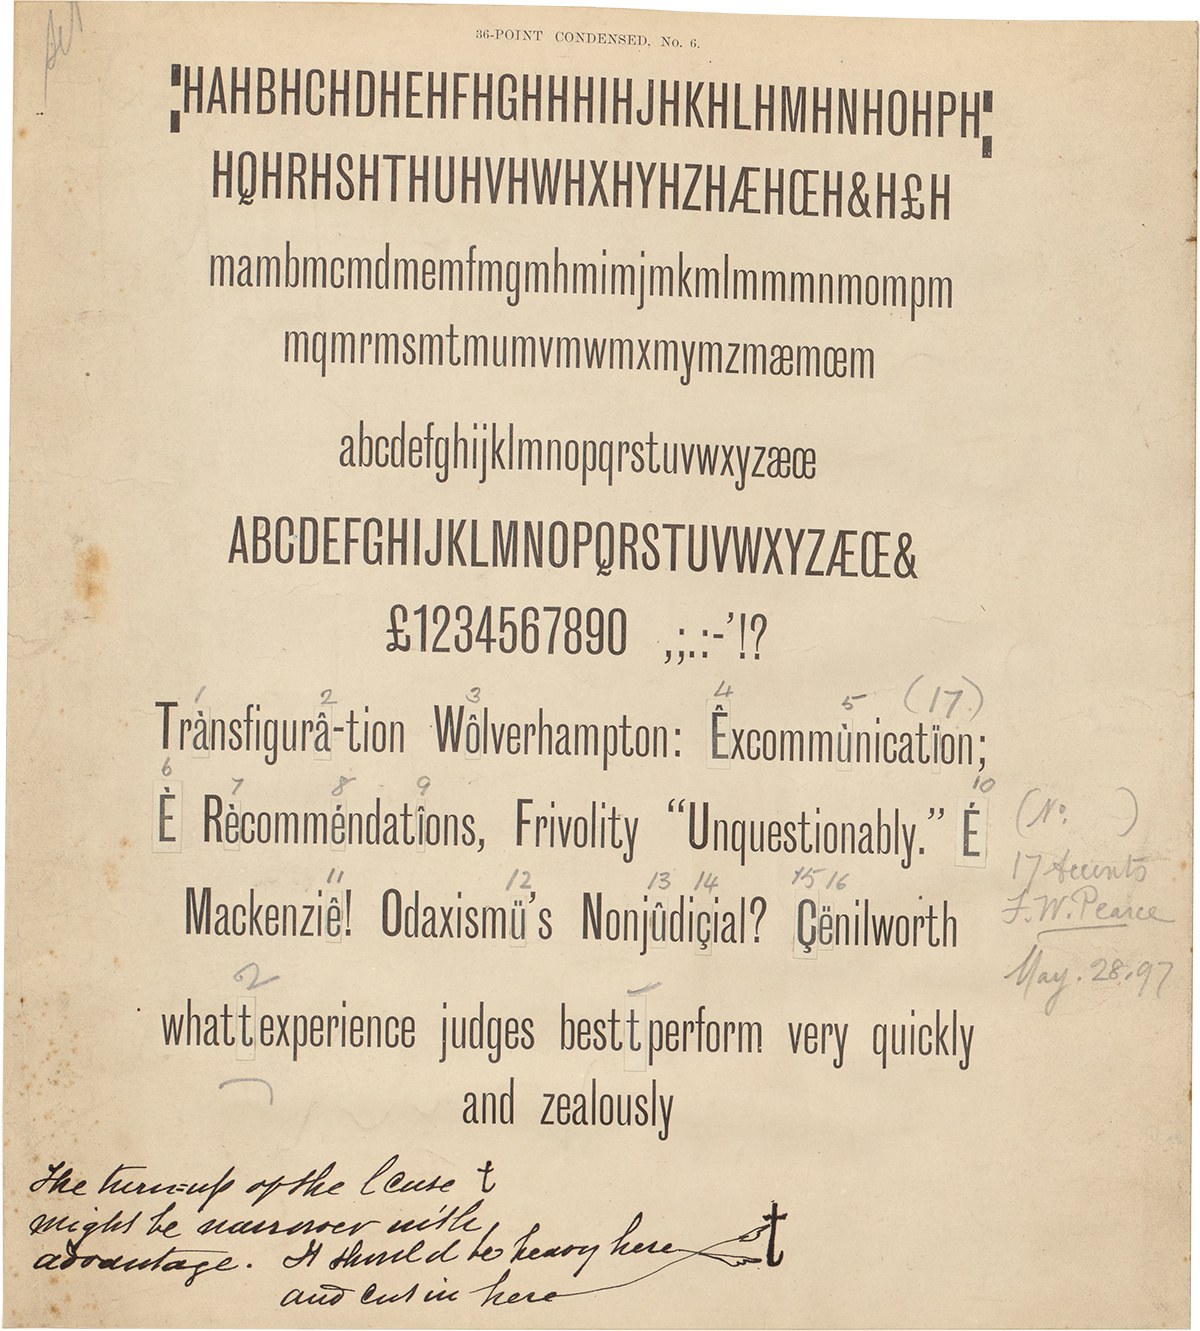 36-POINT CONDENSED, No. 6.
HAHBHCHDHEHFHGHHHIHJHKHLHMHNHOHPH
HQHRHSHTHUHVHWHXHYHZHÆHŒH&H£H
mambmcmdmemfmgmhmimjmkmlmmmnmompm
mqmrmsmtmumvmwmxmymzmæmœm
abcdefghijklmnopqrstuvwxyzæœ
ABCDEFGHIJKLMNOPQRSTUVWXYZÆŒ&
£1234567890 ,;.:-’!?
1 2 3 4 5 (17.)
Trànsfigurâ-tion Wôlverhampton: Êxcommùnicatïon;
6 7 8 9 10
È Rècomméndatîons, Frivolity “Unquestionably.” É
(No. )
17 Accents
F. W. Pearce
May. 28. 97
11 12 13 14 15 16
Mackenziê! Odaxismü’s Nonjûdiçial? Çënilworth
2
whatt experience judges bestt perform very quickly
and zealously
The turn-up of the l case t
might be narrower with
advantage. It should be heavy here t
and cut in here